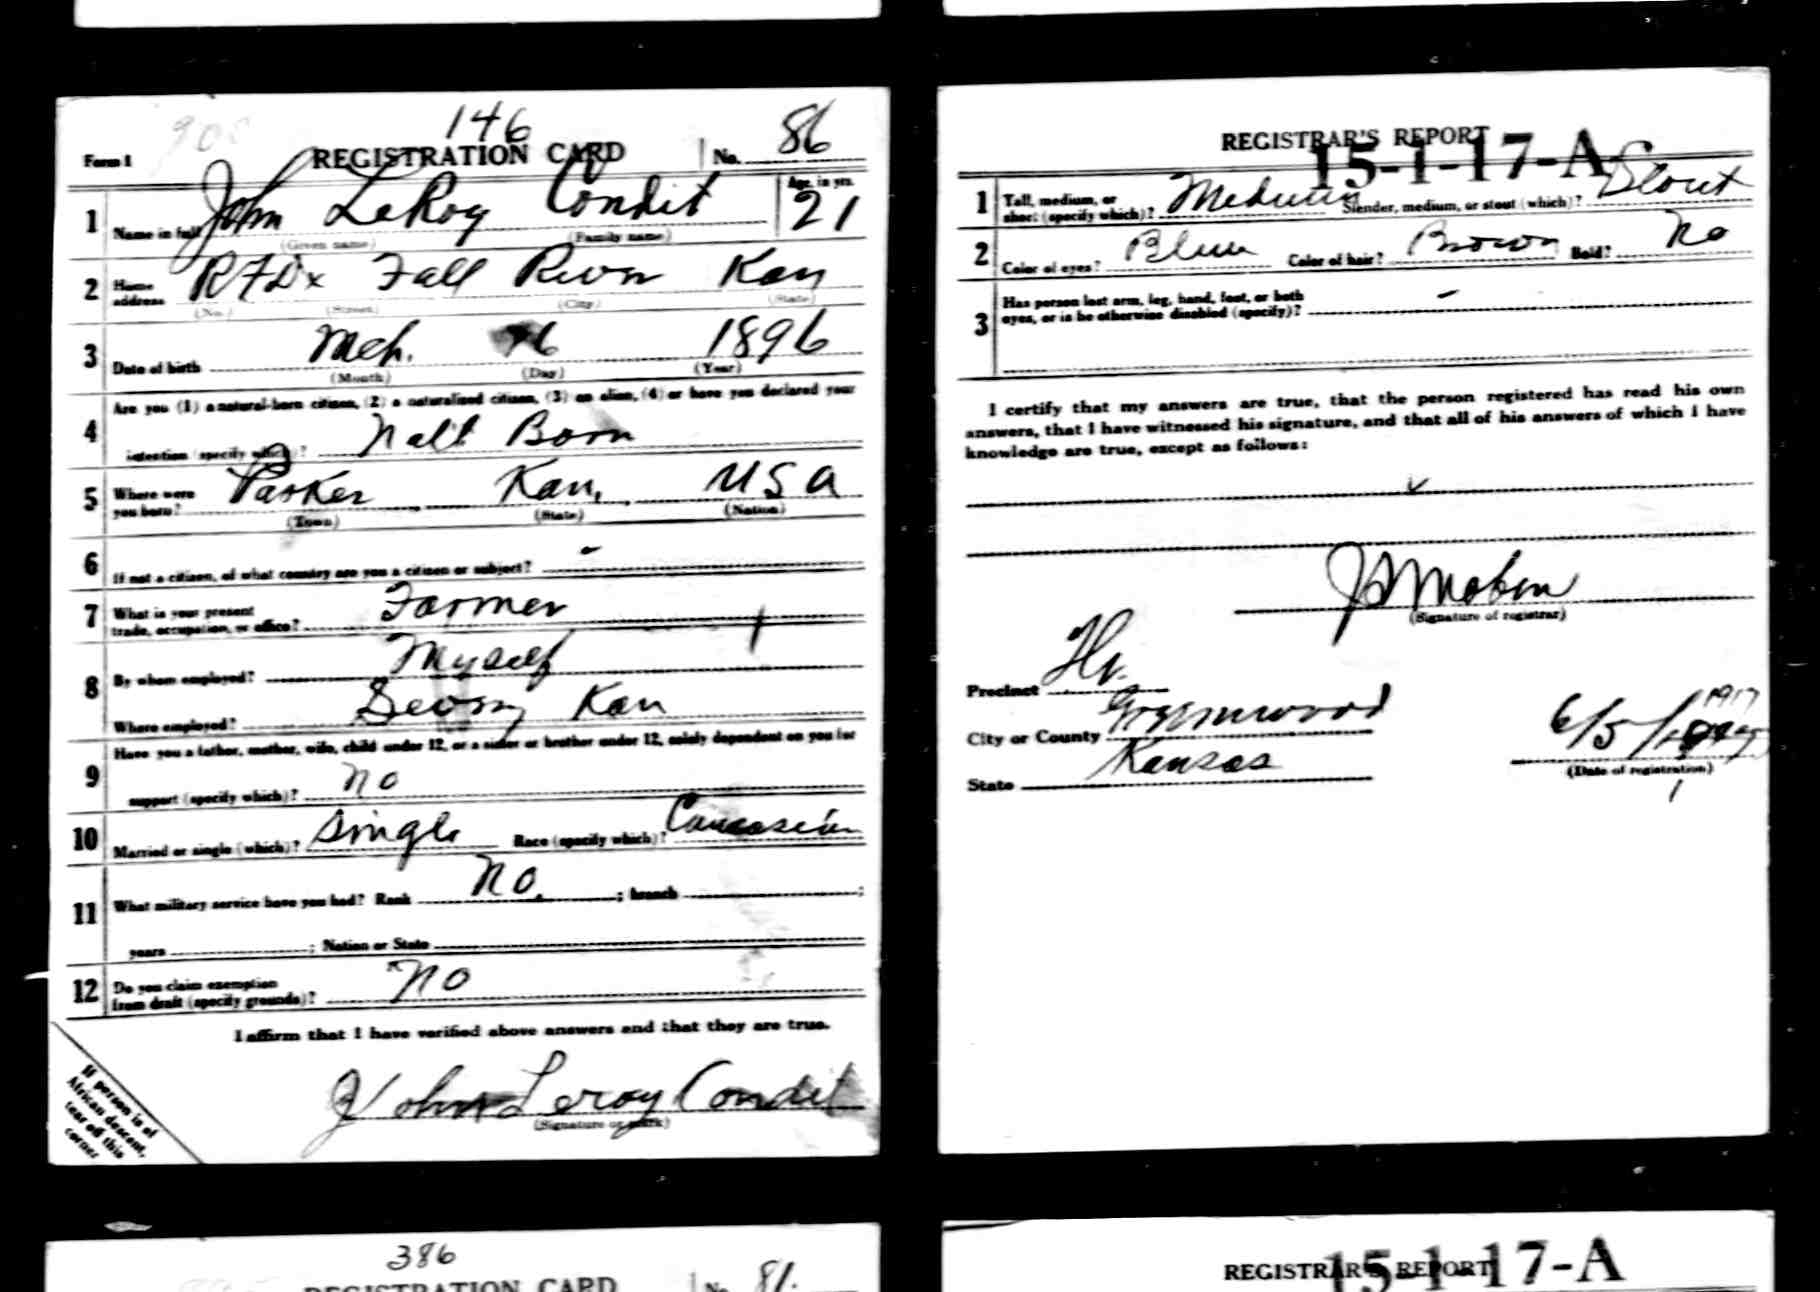 146
Form 1 REGISTRATION CARD No. 86
1 Name in full John LeRoy Condit Age, in yrs. 21
(Given name) (Family name)
2 Home address RFD x Fall River Kan
(No.) (Street) (City) (State)
3 Date of birth Mch. 6 1896
(Month) (Day) (Year)
Are you (1) a natural-born citizen, (2) a naturalized citizen, (3) an alien, (4) or have you declared your
4 intention (specify which)? Natl Born
5 Where were you born? Parker Kan, USA
(Town) (State) (Nation)
6 If not a citizen, of what country are you a citizen or subject? -
7 What is your present trade, occupation, or office? Farmer
8 By whom employed? Myself
Where employed? Kan
Have you a father, mother, wife, child under 12, or a sister or brother under 12, solely dependent on you for
9 support (specify which)? no
10 Married or single (which)? Single Race (specify which)? Caucasian
11 What military service have you had? Rank No. ; branch ;
years ; Nation or State
12 Do you claim exemption from draft (specify grounds)? No
I affirm that I have verified above answers and that they are true.
John Leroy Condit
(Signature or mark)
If person is of
African descent,
tear off this
corner
REGISTRAR'S REPORT
15-1-17-A
1 Tall, medium, or short (specify which)? Medium Slender, medium, or stout (which)? Stout
2 Color of eyes? Blue Color of hair? Brown Bald? No
3 Has person lost arm, leg, hand, foot, or both
eyes, or is he otherwise disabled (specify)? -
I certify that my answers are true, that the person registered has read his own
answers, that I have witnessed his signature, and that all of his answers of which I have
knowledge are true, except as follows:
(Signature of registrar)
Precinct
City or County Greenwood
State Kansas
6/5/1917
(Date of registration)
386
REGISTRATION CARD No. 81.
REGISTRAR'S REPORT
15-1-17-A